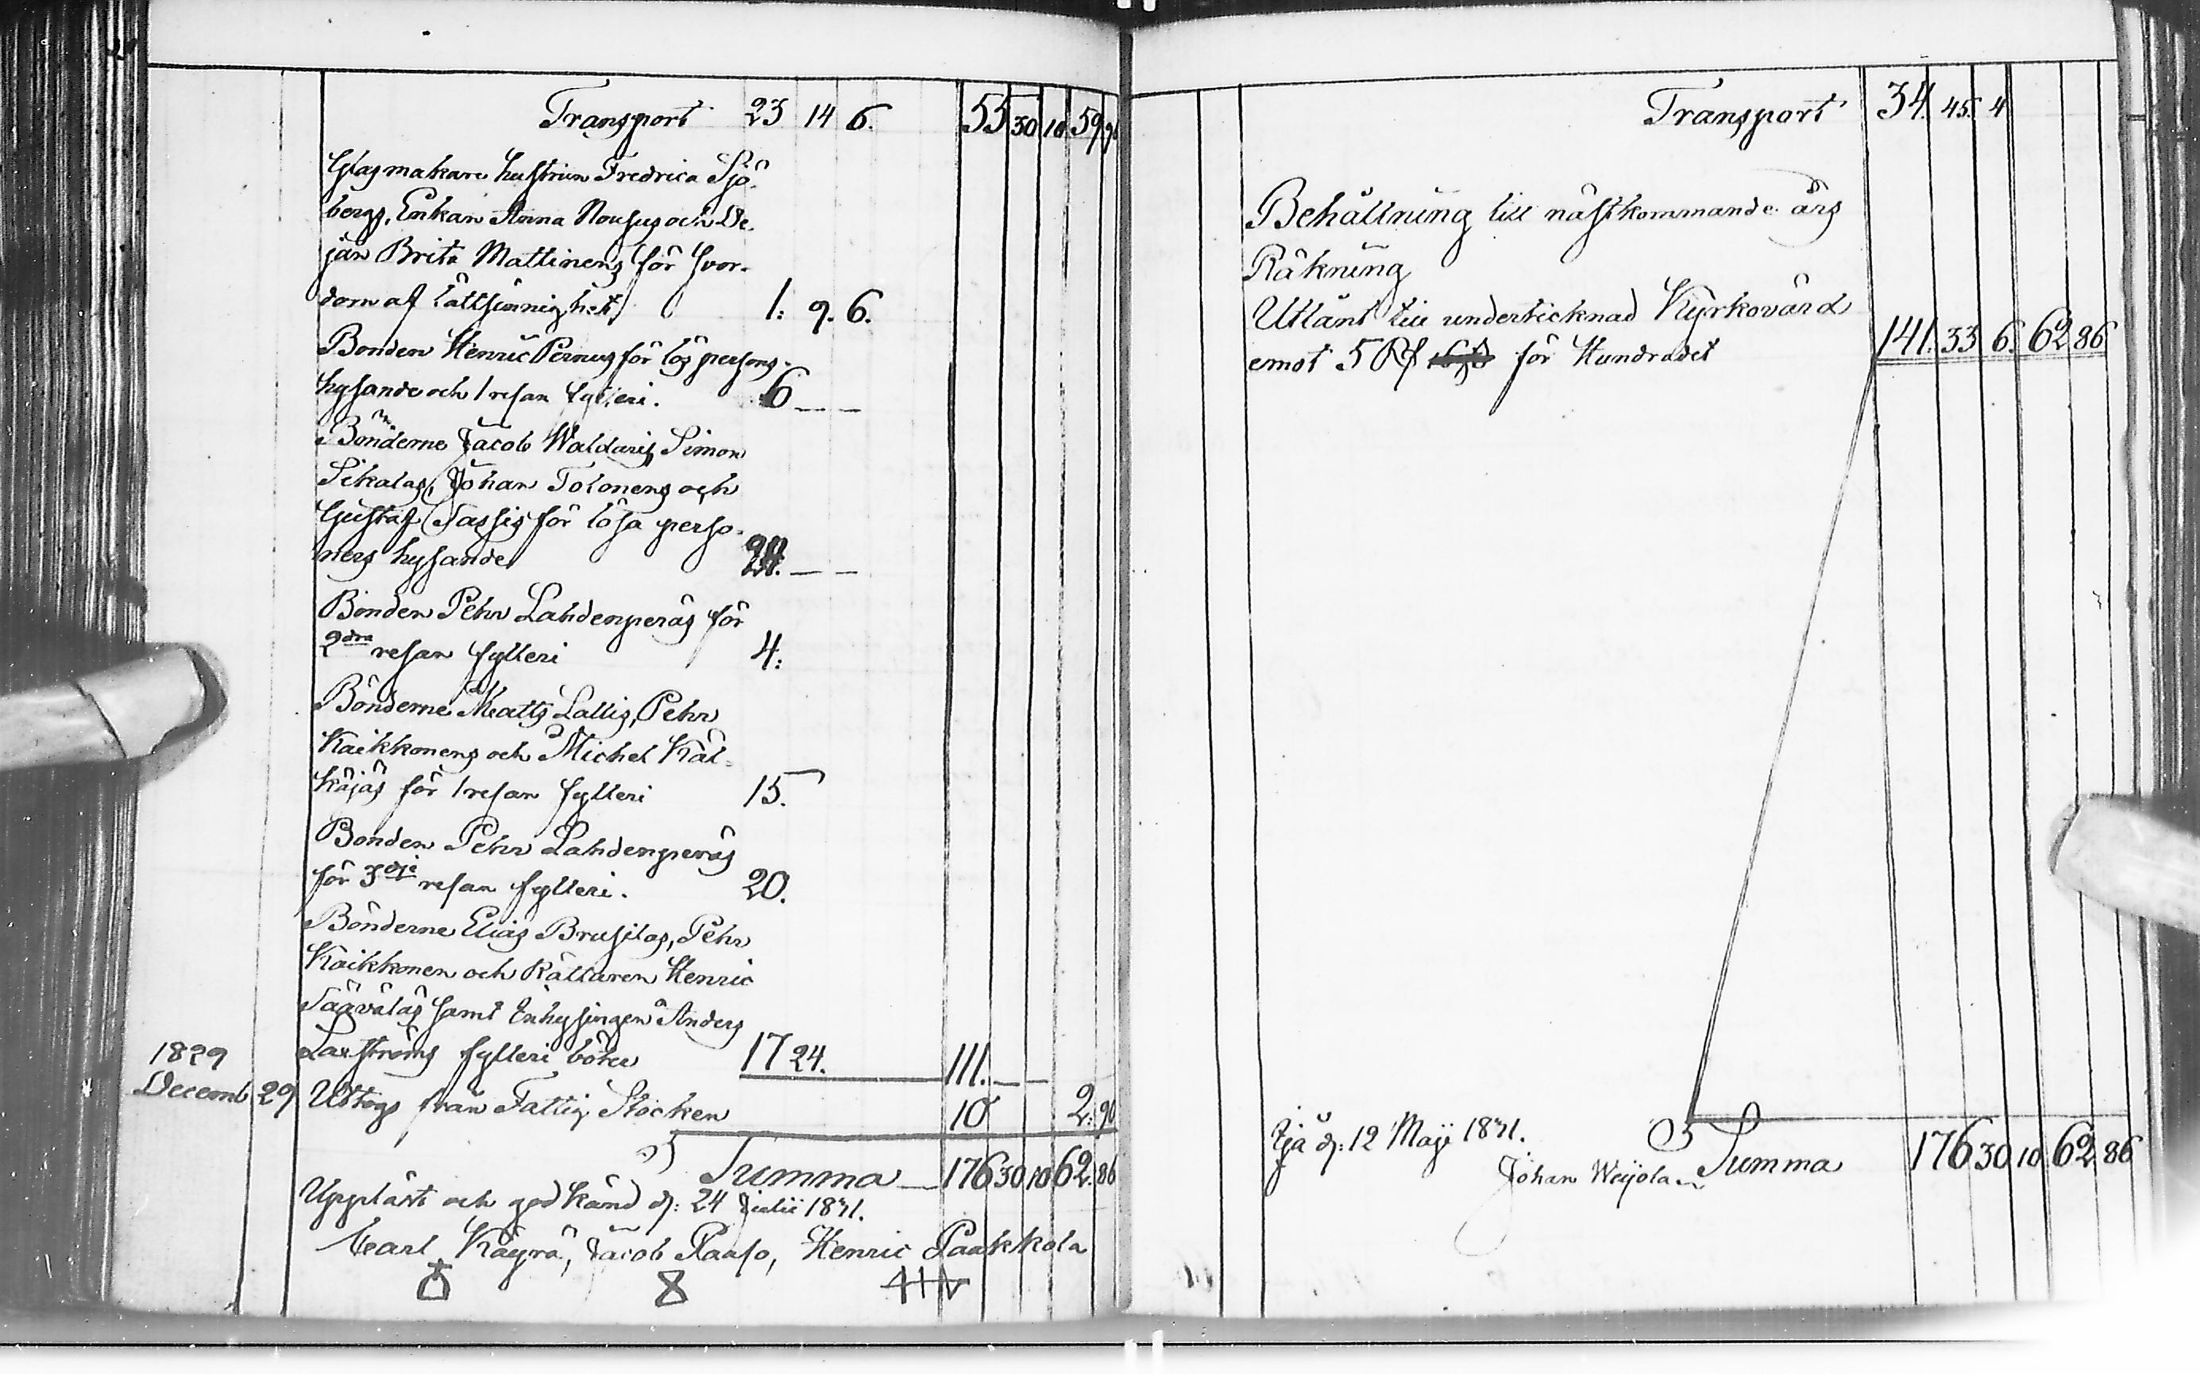 Transport 23 14 6. 55 30 10 59 96
Glasmakare hustrun Fredrica Sjö-
bergs, Enkan Anna Nousus och De-
jan Brita Mattinens för hor-
dom af lättsinnighet 1: 9. 6.
Bonden Henric Pernus för lös persons
hysande och 1 resan fylleri. 6 — —
Bönderne Jacob Waldaris, Simon
Sikalas, Johan Tolonens och
Gustaf Tassis för lösa perso-
ners hysande 24. — —
Bonden Pehr Lahdenperäs för
2dra resan fylleri 4:
Bönderne Matts Lallis, Pehr
Kaikkonens och Michel Käl-
käjäs för 1 resan fylleri 15.
Bonden Pehr Lahdenperäs
för 3dje resan fylleri. 20.
Bönderne Elias Brusilas, Pehr
Kaikkonen och Rättaren Henric
Säävälas samt Enhysingen Anders
Laxströms fylleri böter 17 24. 111. — —
1829
Decemb 29 Uttogs från Fattig Stocken 10 2. 90
Summa — 176 30 10 62. 86
Uppläst och god känd d: 24 Julii 1831.
Carl Käyrä, Jacob Raaso, Henric Paakkola
Transport 34. 45. 4
Behållning till nästkommande års
Räkning
Utlånt till undertecknad Kyrkovärd
emot 5 Rf för Hundradet 141. 33 6. 62 86
Ijå d: 12 Maji 1831.
Johan Weijola
Summa 176 30 10 62 86